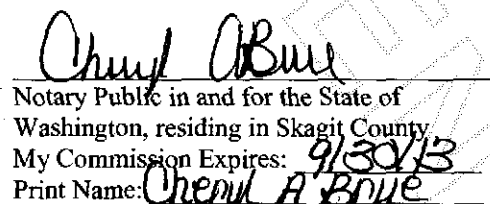 Cheryl A Brue
Notary Public in and for the State of
Washington, residing in Skagit County
My Commission Expires: 9/30/13
Print Name: Cheryl A Brue